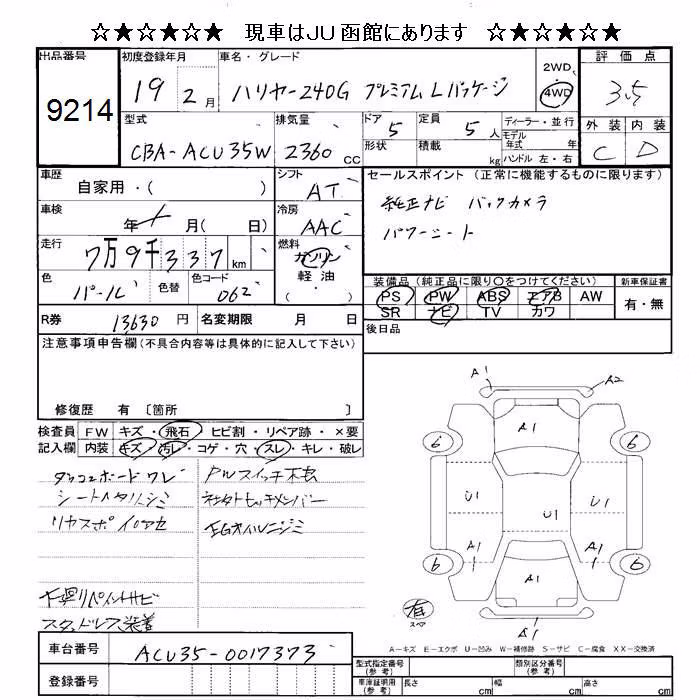 ☆★☆★☆★ 現車はJU函館にあります ☆★☆★☆★
出品番号 初度登録年月 車名・グレード 2WD 4WD 評価点
9214 19 2月 ハリヤー240G プレミアムLパッケージ 3.5
型式 排気量 ドア 5 定員 5人 ディーラー・並行 外装 内装
CBA-ACU35W 2360cc 形状 積載 kg モデル年式 年 ハンドル 左・右 C D
車歴 自家用・( ) シフト AT セールスポイント (正常に機能するものに限ります)
車検 年 月( 日) 冷房 AAC 純正ナビ バックカメラ
走行 7万9千337km 燃料 ガソリン 軽油 ( ) パワーシート
色 パール 色替 色コード 062 装備品(純正品に限り〇をつけてください) 新車保証書
PS PW ABS エアB AW 有・無
R券 13630円 名変期限 月 日 SR ナビ TV カワ
後日品
注意事項申告欄(不具合内容等は具体的に記入して下さい)
修復歴 有 〔箇所 〕
検査員 FW キズ・飛石・ヒビ割・リペア跡・×要
記入欄 内装 キズ・汚レ・コゲ・穴・スレ・キレ・破レ
ダッシュボードワレ PWスイッチ
シート シミ
リヤスポイロアセ EGオイルニジミ
下廻リペイントサビ
スタッドレス装着
A1 A2
A1
6 6
U1 U1 U1
A1 A1
6 6
A1
有 スペア A1
A-キズ E-エクボ U-凹み W-補修跡 S-サビ C-腐食 XX-交換済
車台番号 ACU35-0017373
登録番号
型式指定番号(参考) 類別区分番号(参考)
車庫証明用(参考) 長さ cm 幅 cm 高さ cm